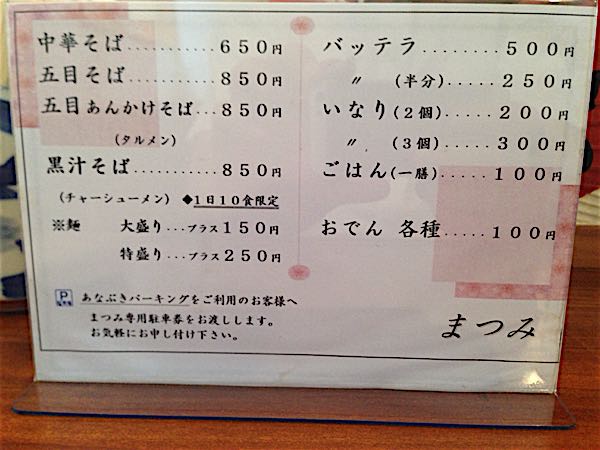 中華そば......650円
五目そば......850円
五目あんかけそば...850円
(タルメン)
黒汁そば......850円
(チャーシューメン) ◆1日10食限定
※麺 大盛り...プラス150円
特盛り...プラス250円
P あなぶきパーキングをご利用のお客様へ
まつみ専用駐車券をお渡しします。
お気軽にお申し付け下さい。
バッテラ........500円
〃 (半分).....250円
いなり(2個).....200円
〃 (3個).....300円
ごはん(一膳).....100円
おでん 各種.....100円
まつみ